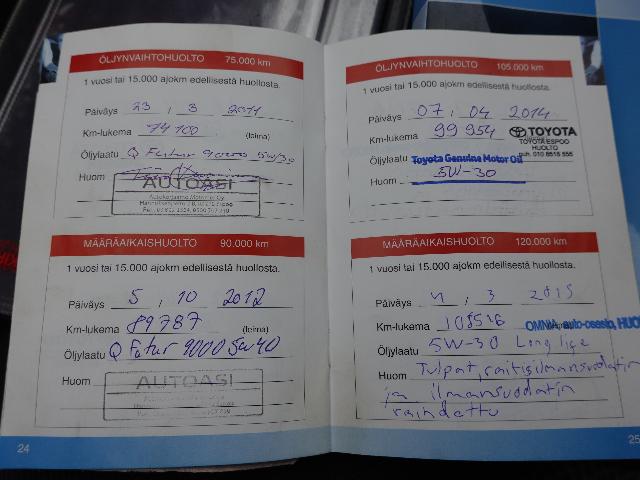 ÖLJYNVAIHTOHUOLTO 75.000 km
1 vuosi tai 15.000 ajokm edellisestä huollosta.
Päiväys 23 , 3 2011
Km-lukema 74100 (leima)
Öljylaatu Q 9000 5W/30
Huom
AUTOASI
MÄÄRÄAIKAISHUOLTO 90.000 km
1 vuosi tai 15.000 ajokm edellisestä huollosta.
Päiväys 5 , 10 2012
Km-lukema 89787 (leima)
Öljylaatu Q Fatur 9000 5w40
Huom
AUTOASI
24
ÖLJYNVAIHTOHUOLTO 105.000 km
1 vuosi tai 15.000 ajokm edellisestä huollosta.
Päiväys 07 , 04 2014
Km-lukema 99 954 TOYOTA
TOYOTA ESPOO
HUOLTO
Öljylaatu Toyota Genuine Motor Oil
puh. 010 8518 555
Huom 5W-30
MÄÄRÄAIKAISHUOLTO 120.000 km
1 vuosi tai 15.000 ajokm edellisestä huollosta.
Päiväys 4 , 3 2015
Km-lukema 108516 OMNIA auto-osasto, HUO
Öljylaatu 5W-30 Long lige
Huom Tulpat, raitisilmansuodatin
ja ilmansuodatin
vaihdettu
25